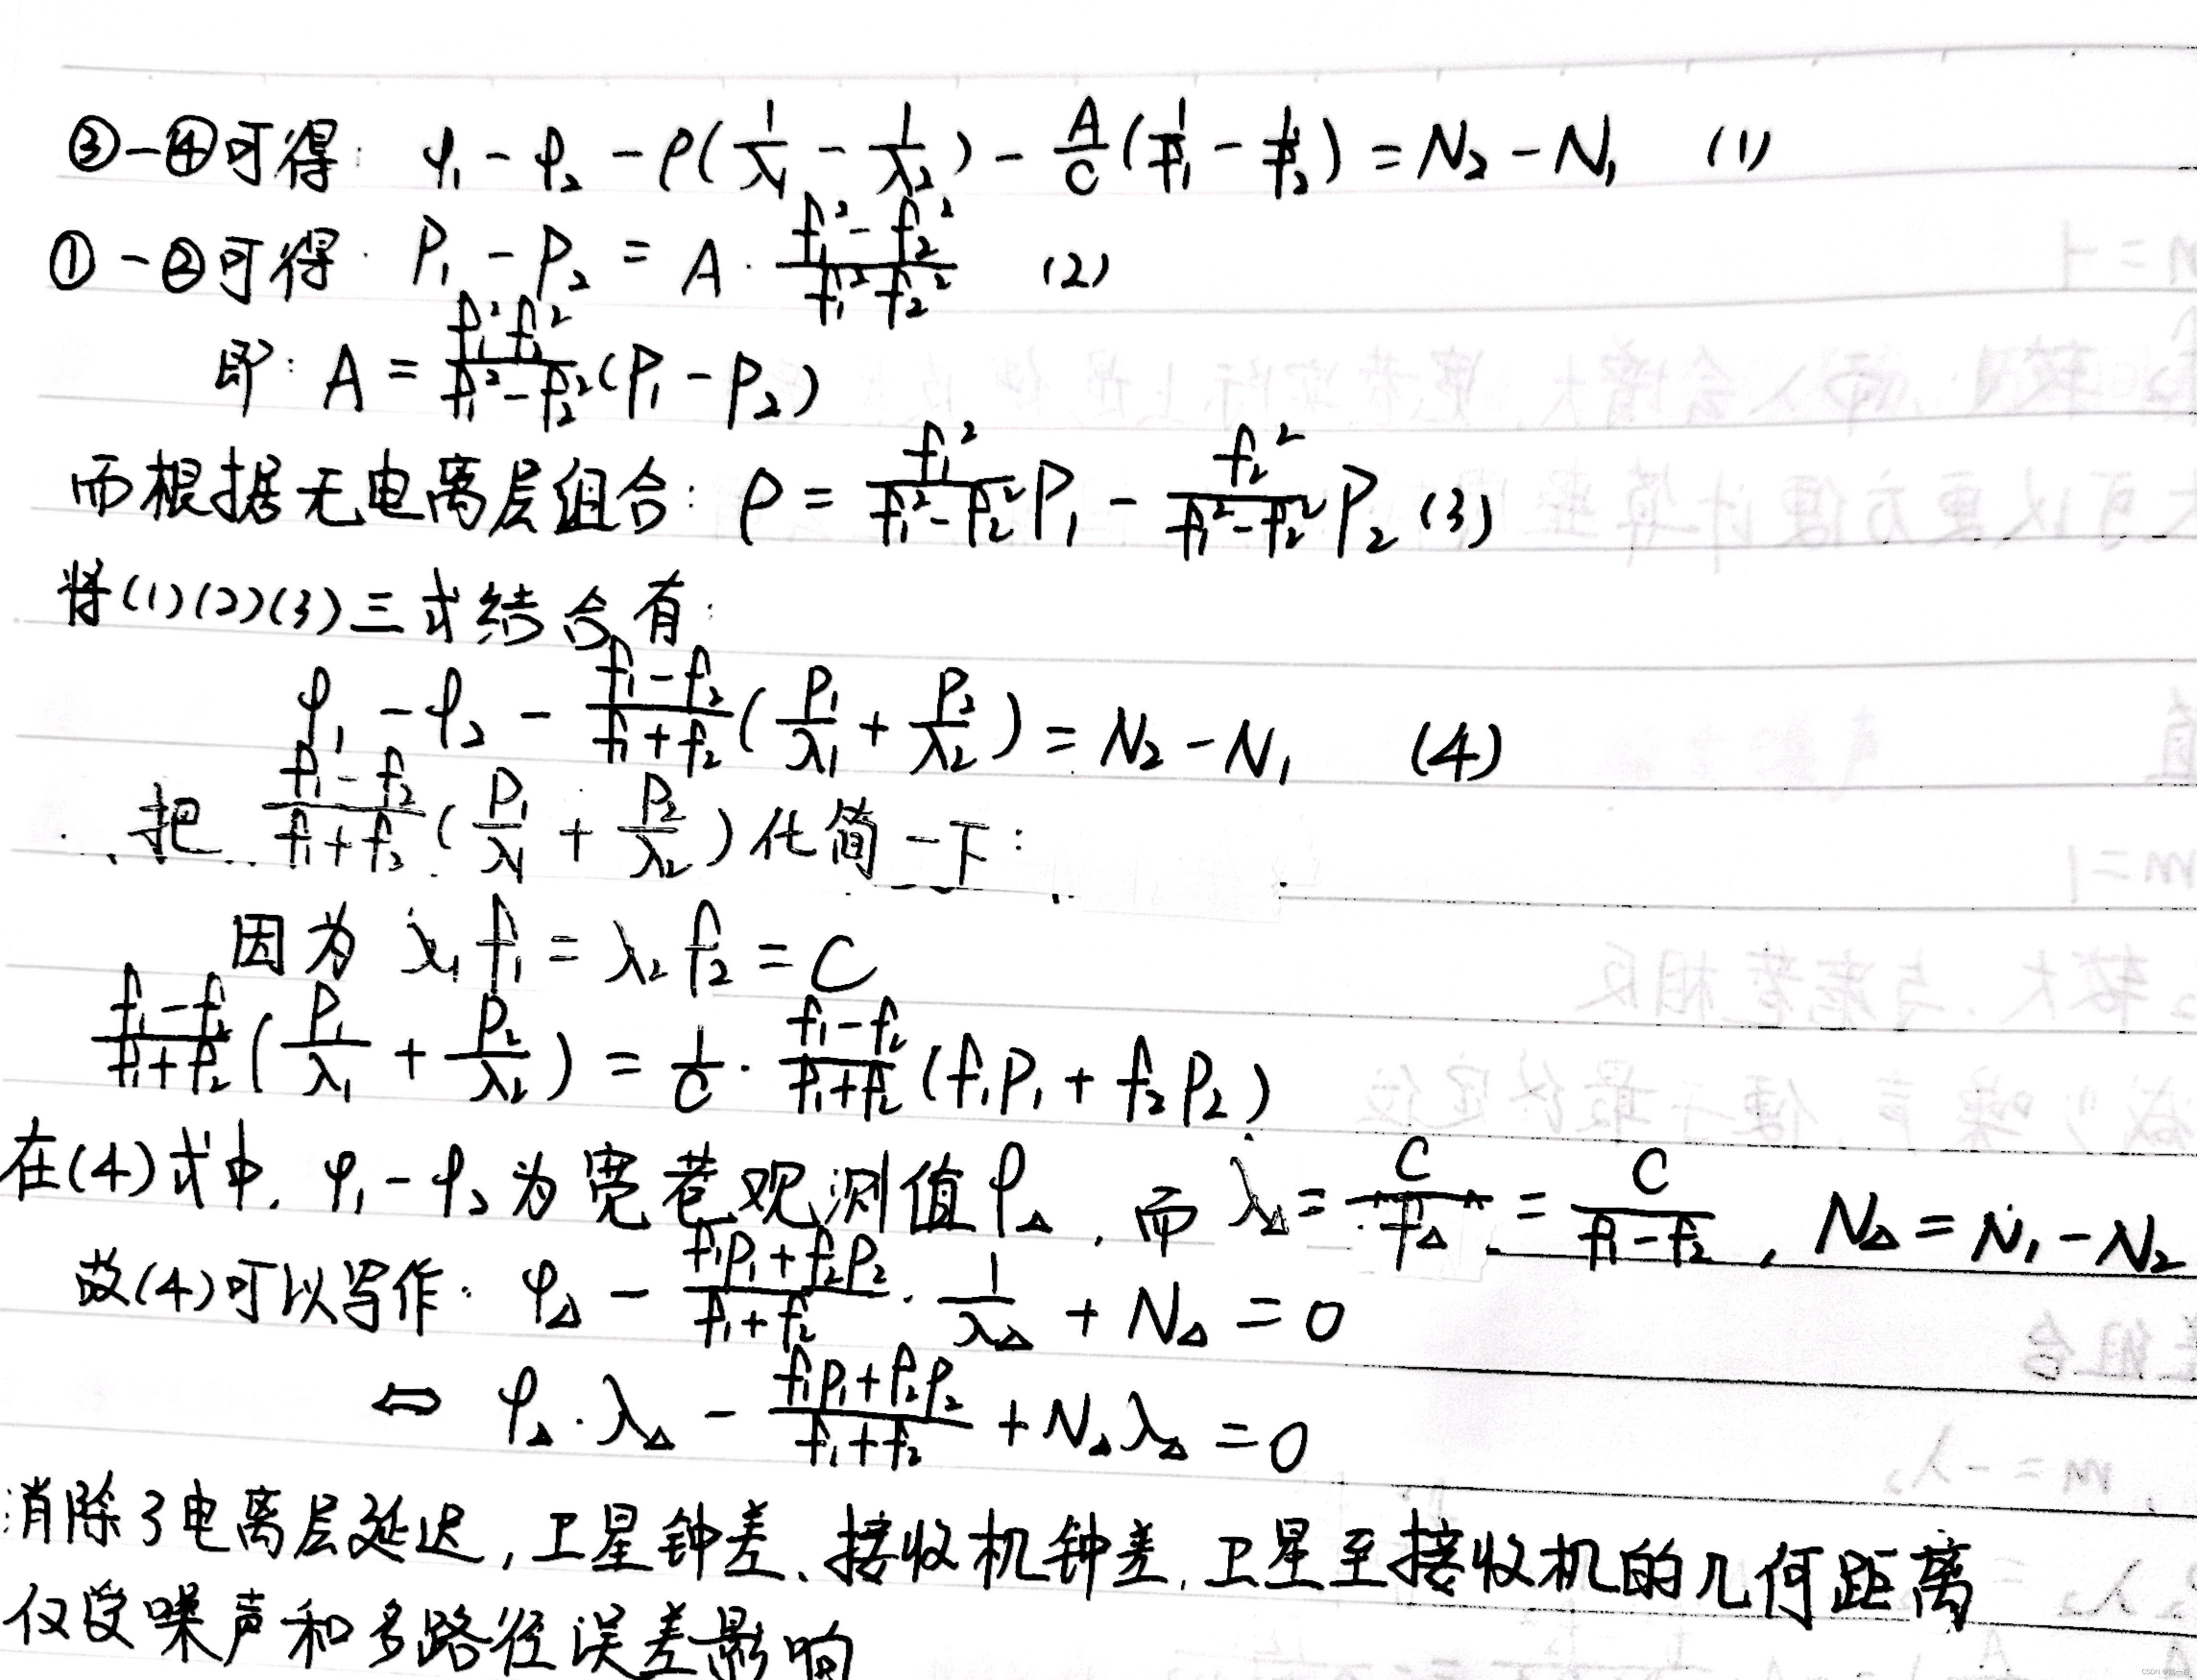 ③-④可得: φ₁ - φ₂ - ρ(1/λ₁ - 1/λ₂) - A/C(1/f₁ - 1/f₂) = N₂ - N₁ (1)
①-②可得: P₁ - P₂ = A · (f₁² - f₂²)/(f₁² f₂²) (2)
即: A = (f₁² f₂²)/(f₁² - f₂²)(P₁ - P₂)
而根据无电离层组合: ρ = f₁²/(f₁² - f₂²) P₁ - f₂²/(f₁² - f₂²) P₂ (3)
将(1)(2)(3)三式结合有:
φ₁ - φ₂ - (f₁ - f₂)/(f₁ + f₂)(P₁/λ₁ + P₂/λ₂) = N₂ - N₁ (4)
把 (f₁ - f₂)/(f₁ + f₂)(P₁/λ₁ + P₂/λ₂)化简一下:
因为 λ₁f₁ = λ₂f₂ = C
(f₁ - f₂)/(f₁ + f₂)(P₁/λ₁ + P₂/λ₂) = 1/C · (f₁ - f₂)/(f₁ + f₂)(f₁P₁ + f₂P₂)
在(4)式中, φ₁ - φ₂为宽巷观测值φ△, 而λ△ = C/f△ = C/(f₁ - f₂), N△ = N₁ - N₂
故(4)可以写作: φ△ - (f₁P₁ + f₂P₂)/(f₁ + f₂) · 1/λ△ + N△ = 0
⇔ φ△ · λ△ - (f₁P₁ + f₂P₂)/(f₁ + f₂) + N△λ△ = 0
消除了电离层延迟, 卫星钟差、接收机钟差, 卫星至接收机的几何距离
仅受噪声和多路径误差影响